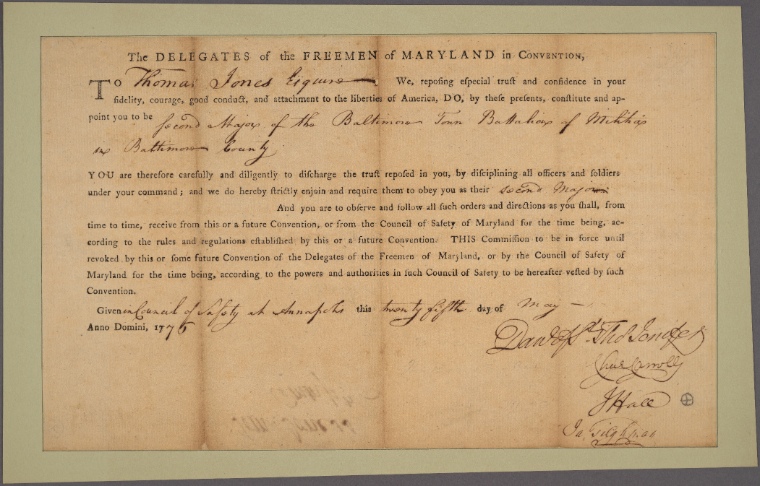 The DELEGATES of the FREEMEN of MARYLAND in CONVENTION,
TO Thomas Jones Esquire We, reposing eſpecial truſt and confidence in your
fidelity, courage, good conduct, and attachment to the liberties of America, DO, by theſe preſents, conſtitute and ap-
point you to be second Major of the Baltimore Town Battalion of Militia
in Baltimore County
YOU are therefore carefully and diligently to diſcharge the truſt repoſed in you, by diſciplining all officers and ſoldiers
under your command; and we do hereby ſtrictly enjoin and require them to obey you as their second Major
And you are to obſerve and follow all ſuch orders and directions as you ſhall, from
time to time, receive from this or a future Convention, or from the Council of Safety of Maryland for the time being, ac-
cording to the rules and regulations eſtabliſhed by this or a future Convention. THIS Commiſſion to be in force until
revoked by this or ſome future Convention of the Delegates of the Freemen of Maryland, or by the Council of Safety of
Maryland for the time being, according to the powers and authorities in ſuch Council of Safety to be hereafter veſted by ſuch
Convention.
Given in Council of Safety at Annapolis this twenty fifth day of May
Anno Domini, 1776
Dan of St Tho Jenifer
Chas Carroll
J Hall
Ja Tilghman